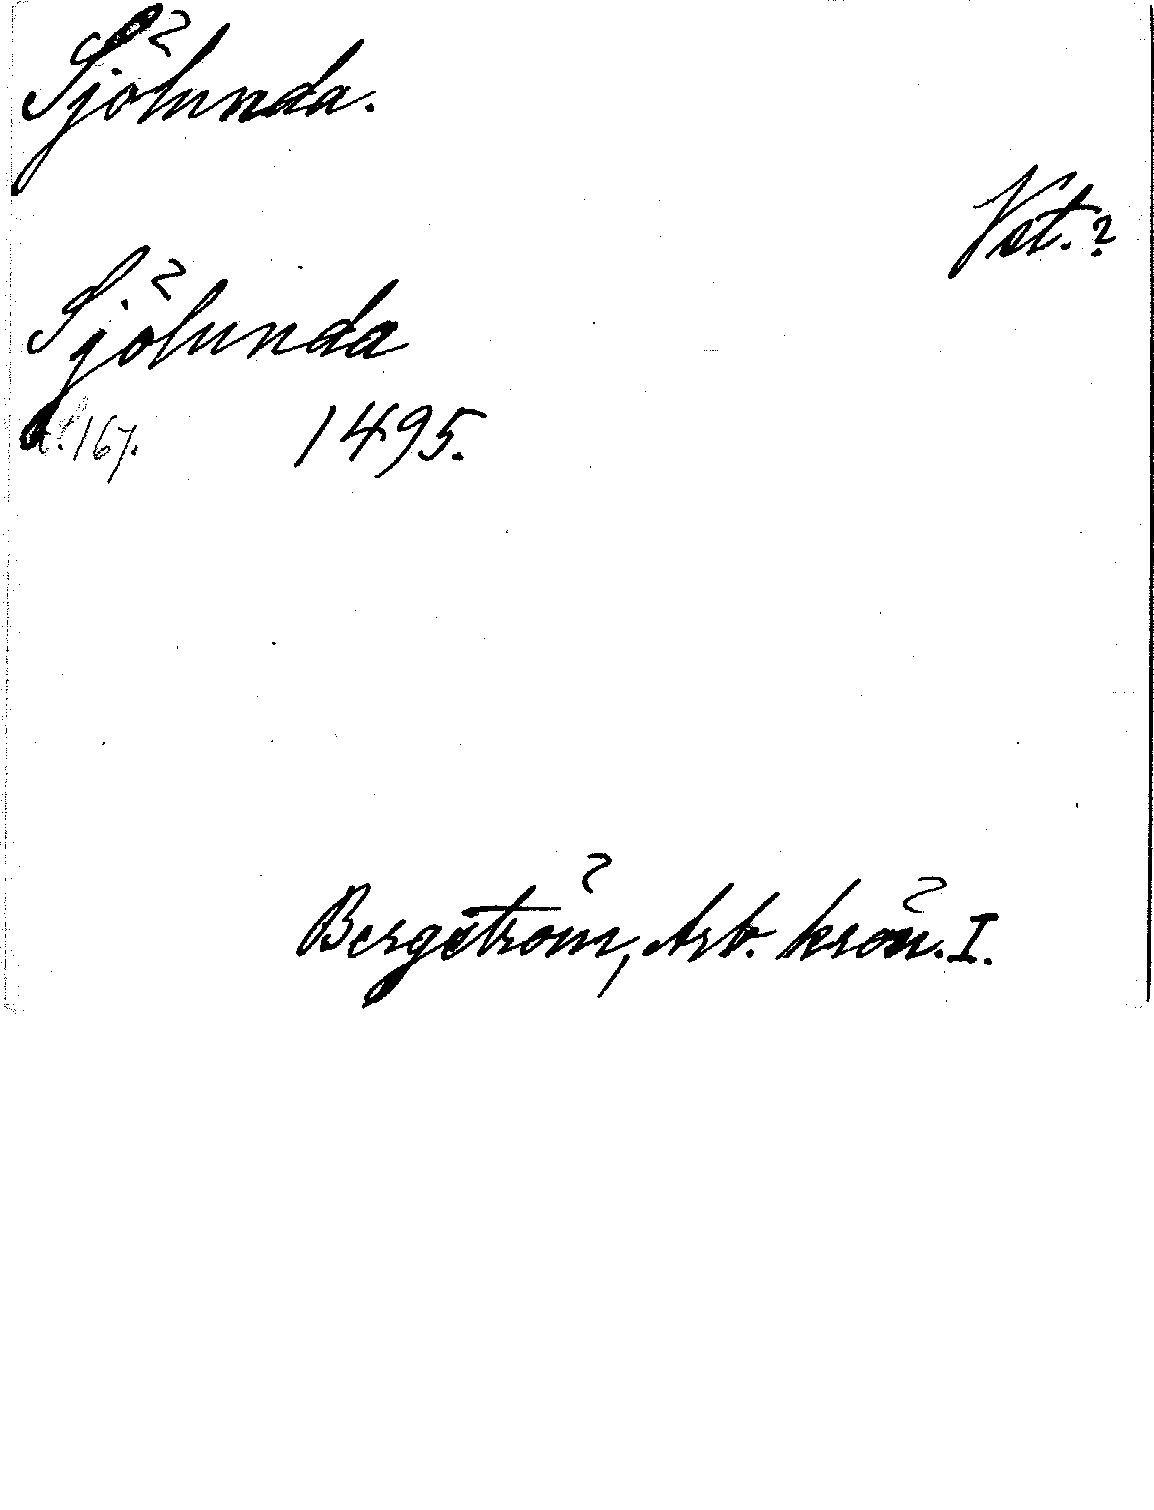 Sjölunda.
Vst.?
Sjölunda
s. 167. 1495.
Bergström, Arb. krön. I.